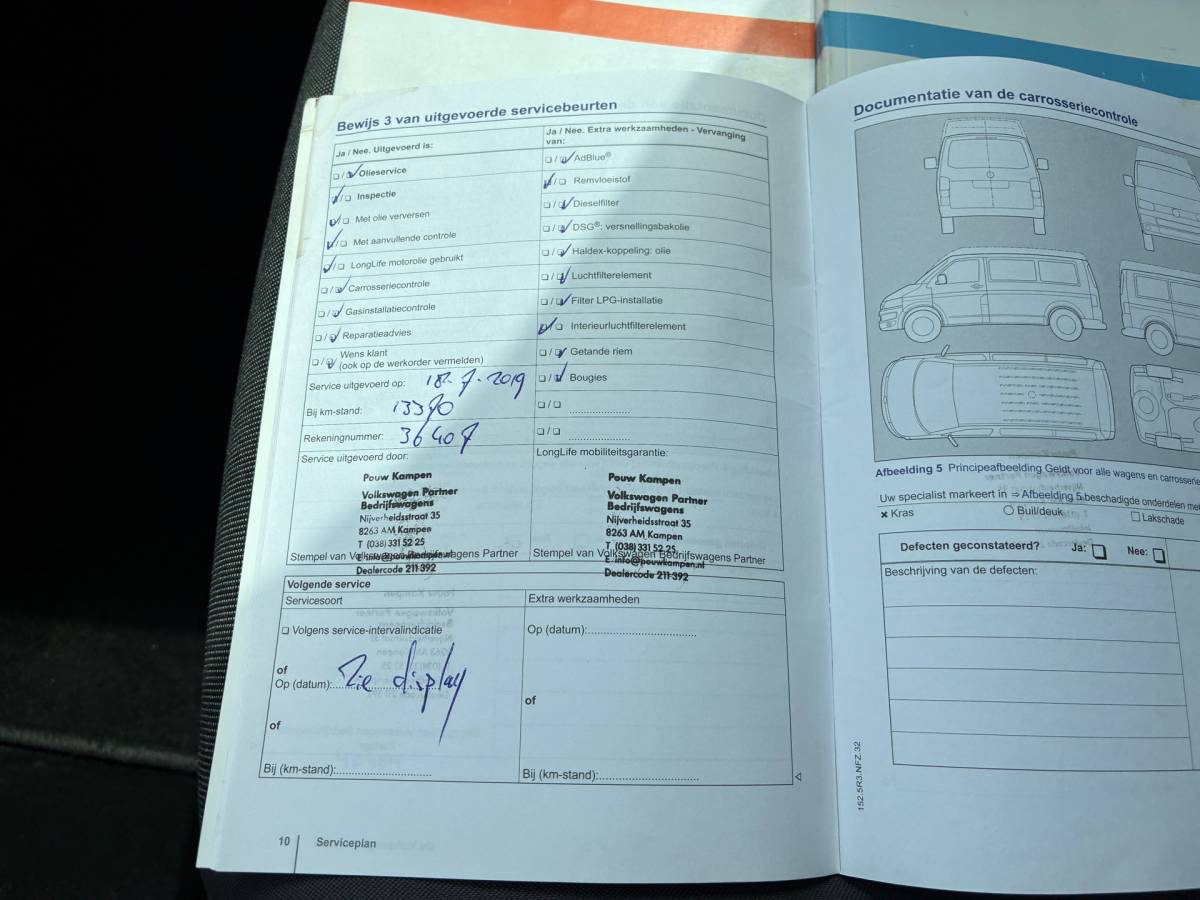 Bewijs 3 van uitgevoerde servicebeurten
Ja / Nee. Uitgevoerd is:
Olieservice
Inspectie
Met olie verversen
Met aanvullende controle
LongLife motorolie gebruikt
Carrosseriecontrole
Gasinstallatiecontrole
Reparatieadvies
Wens klant
(ook op de werkorder vermelden)
Service uitgevoerd op: 18-7-2019
Bij km-stand: 13370
Rekeningnummer: 36407
Ja / Nee. Extra werkzaamheden - Vervanging
van:
AdBlue®
Remvloeistof
Dieselfilter
DSG®: versnellingsbakolie
Haldex-koppeling: olie
Luchtfilterelement
Filter LPG-installatie
Interieurluchtfilterelement
Getande riem
Bougies
Service uitgevoerd door:
Pouw Kampen
Volkswagen Partner
Bedrijfswagens
Nijverheidsstraat 35
8263 AM Kampen
T (038) 331 52 25
E info@pouwkampen.nl
Stempel van Volkswagen Bedrijfswagens Partner
Dealercode 211392
LongLife mobiliteitsgarantie:
Pouw Kampen
Volkswagen Partner
Bedrijfswagens
Nijverheidsstraat 35
8263 AM Kampen
T (038) 331 52 25
Stempel van Volkswagen Bedrijfswagens Partner
E info@pouwkampen.nl
Dealercode 211392
Volgende service
Servicesoort
Volgens service-intervalindicatie
of
Op (datum): Zie display
of
Bij (km-stand):
Extra werkzaamheden
Op (datum):
of
Bij (km-stand):
10 Serviceplan
Documentatie van de carrosseriecontrole
Afbeelding 5 Principeafbeelding Geldt voor alle wagens en carrosserie
Uw specialist markeert in ⇒ Afbeelding 5 beschadigde onderdelen met
× Kras
Buil/deuk
Lakschade
Defecten geconstateerd? Ja: Nee:
Beschrijving van de defecten:
152.5R3.NFZ.32